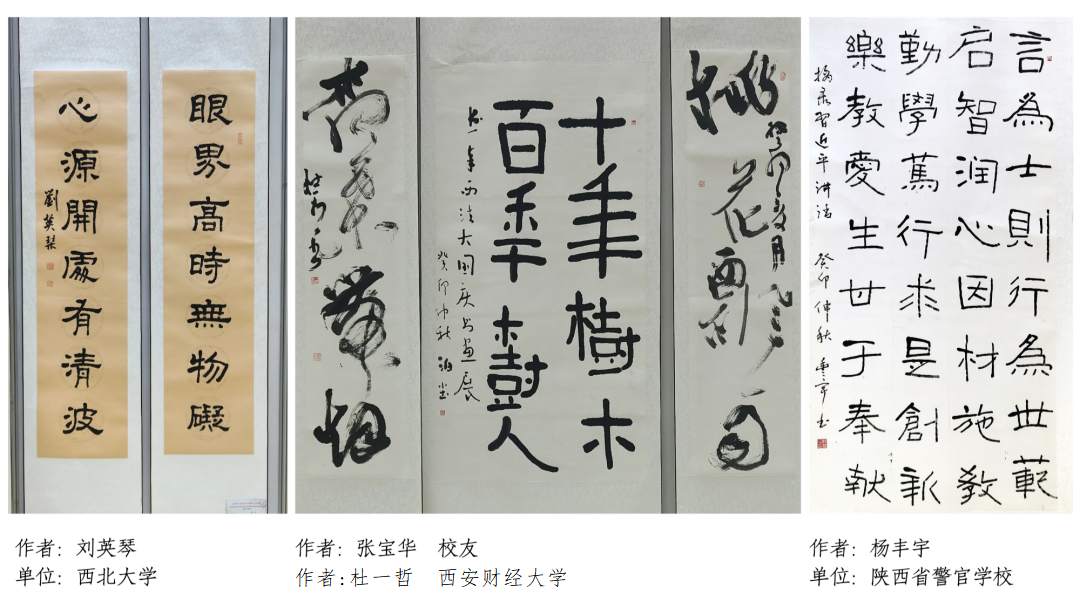 眼界高時無物礙
心源開處有清波
劉英琴
花
十年樹木
百年樹人
西法大国庆书画展
癸卯中秋
言為士則行為世範
启智润心因材施教
勤學篤行求是創新
樂教愛生甘于奉献
摘录習近平讲话 癸卯仲秋
作者：刘英琴
单位：西北大学
作者：张宝华 校友
作者:杜一哲 西安财经大学
作者：杨丰宇
单位：陕西省警官学校